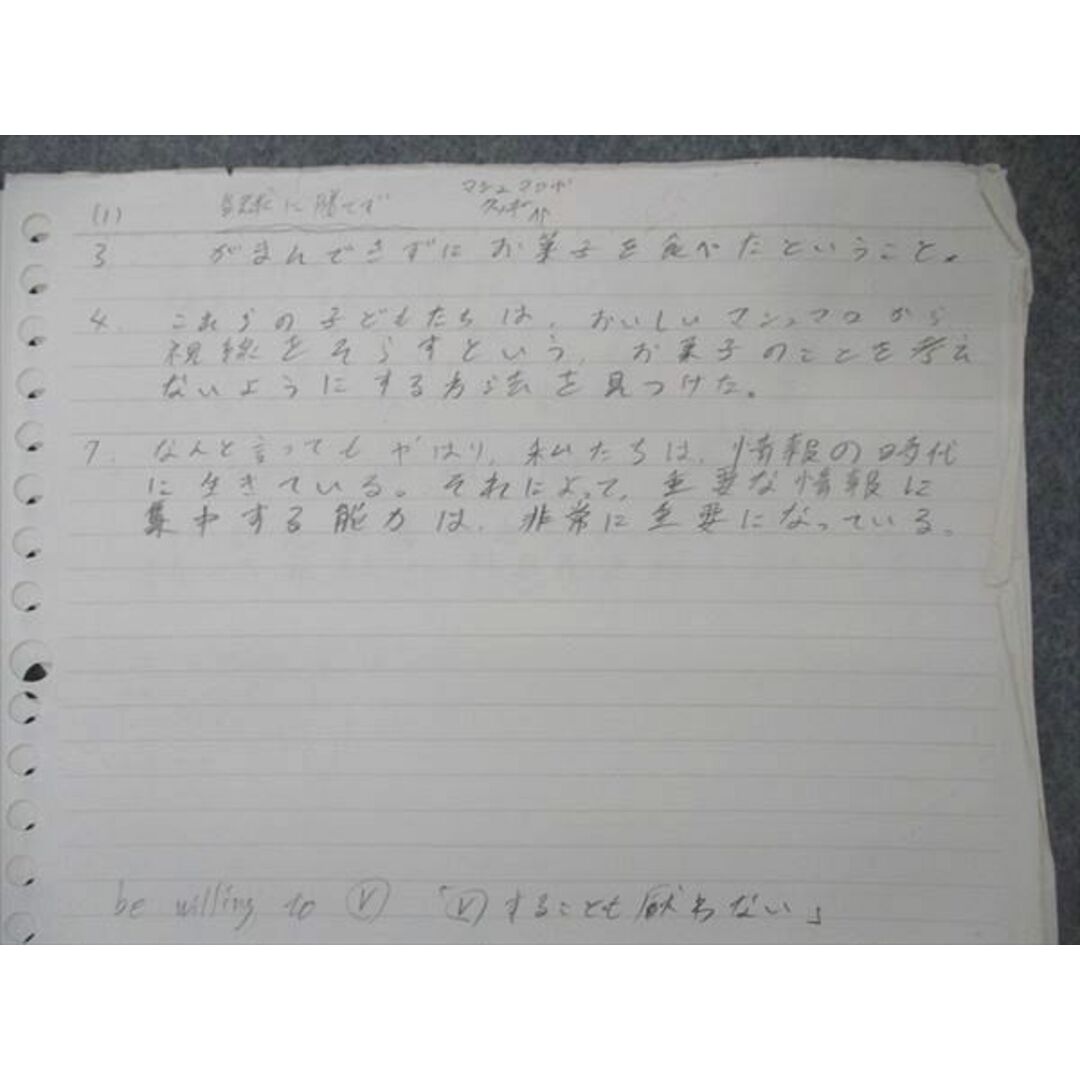 (1) に勝てず マシュマロが
3 がまんできずにお菓子を食べたということ。
4. これらの子どもたちは、おいしいマシュマロから
視線をそらすという、お菓子のことを考え
ないようにする方法を見つけた。
7. なんと言ってもやはり、私たちは、情報の時代
に生きている。それによって、重要な情報に
集中する能力は、非常に重要になっている。
be willing to Ⓥ 「Ⓥすることも厭わない」